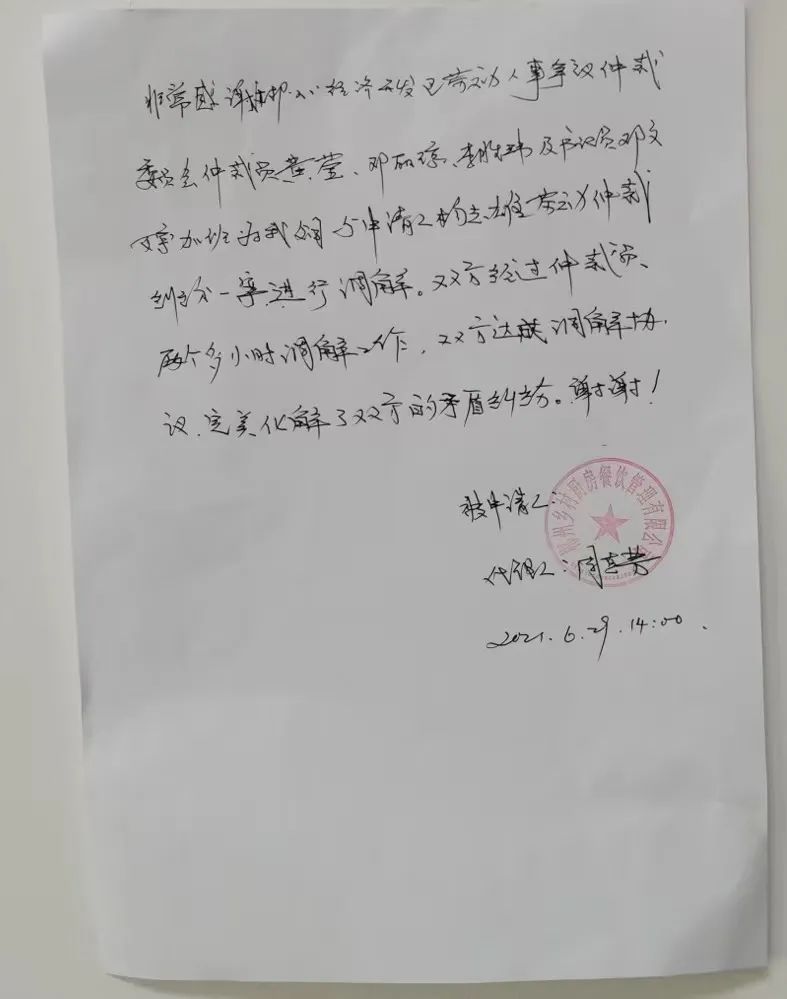 非常感谢柳州经济开发区劳动人事争议仲裁
委员会仲裁员黄莹、邓丽琼、李胜玮及书记员邓文
婷加班为我公司与申请人杨志雄劳动仲裁
纠纷一事进行调解。双方经过仲裁员、
两个多小时调解工作,双方达成调解协
议、完美化解了双方的矛盾纠纷。谢谢!
被申请人:
州乡村厨房餐饮管理有限公司
代理人:周
2021.6.29.14:00.